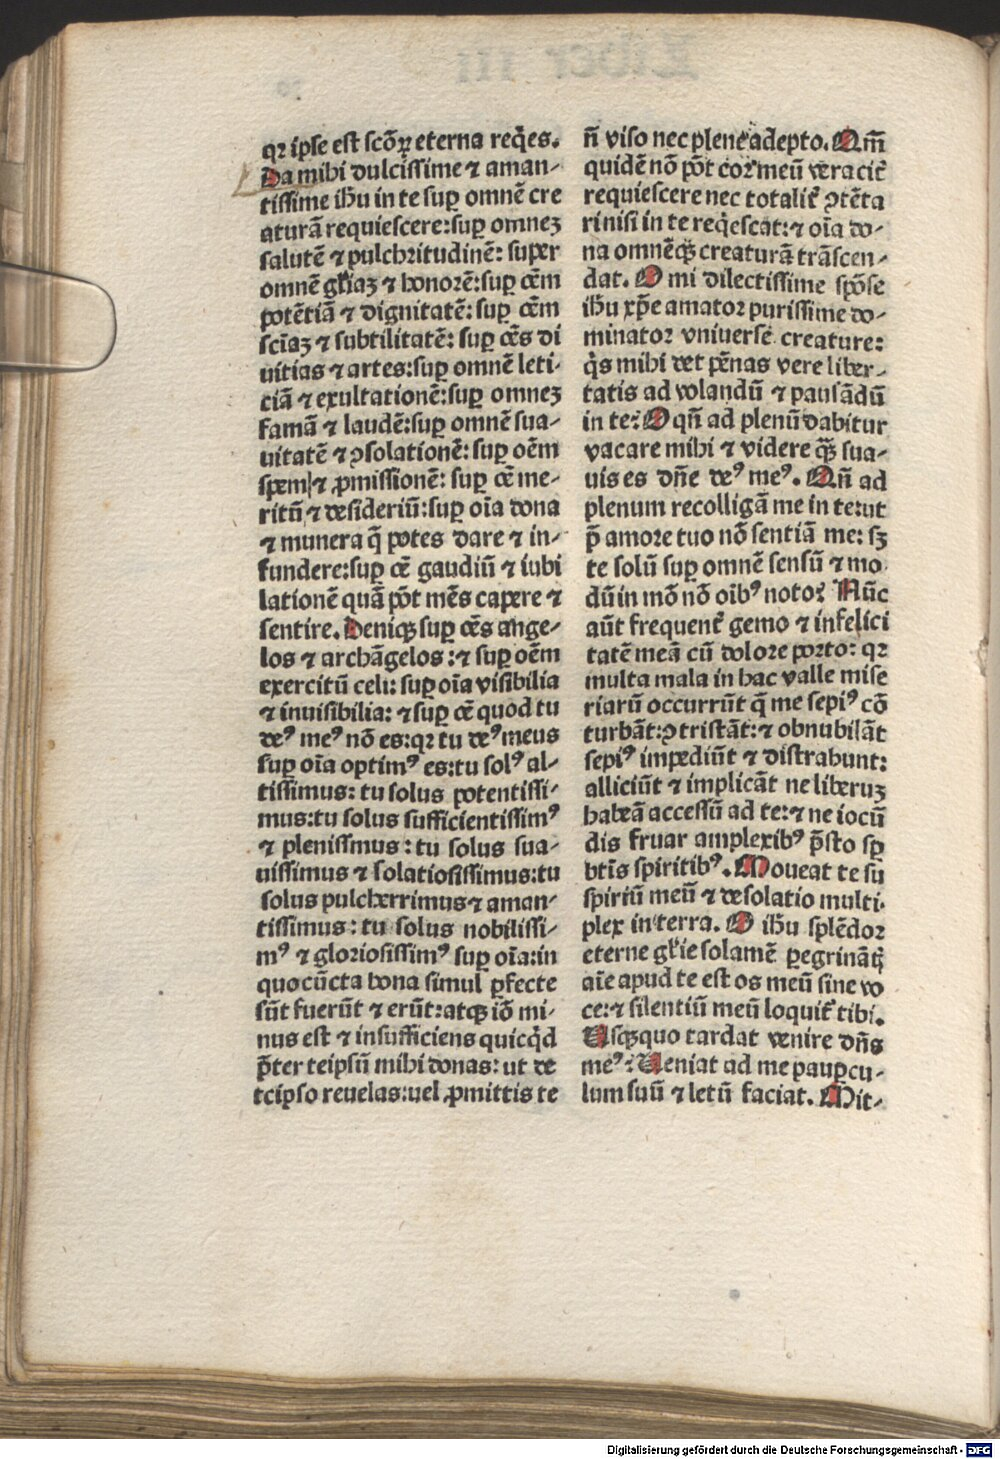 qꝛ ipse est scōꝝ eterna req̄es.
Da mihi dulcissime ⁊ aman⸗
tissime ihū in te sup̱ omnē cre
aturā requiescere: sup̱ omneꝫ
salutē ⁊ pulchritudinē: super
omnē gl'iaꝫ ⁊ honorē: sup̱ oēm
potētiā ⁊ dignitatē: sup̱ oēm
sciaꝫ ⁊ subtilitatē: sup̱ oēs di
uitias ⁊ artes: sup̱ omnē leti⸗
ciā ⁊ exultationē: sup̱ omneꝫ
famā ⁊ laudē: sup̱ omnē sua⸗
uitatē ⁊ ꝯsolationē: sup̱ oēm
spem ⁊ ꝓmissionē: sup̱ oē me⸗
ritū ⁊ desideriū: sup̱ oīa dona
⁊ munera q̄ potes dare ⁊ in⸗
fundere: sup̱ oē gaudiū ⁊ iubi
lationē quā pōt mēs capere ⁊
sentire. Deniqꝫ sup̱ oēs ange⸗
los ⁊ archāgelos: ⁊ sup̱ oēm
exercitū celi: sup̱ oīa visibilia
⁊ inuisibilia: ⁊ sup̱ oē quod tu
deꝰ meꝰ nō es: qꝛ tu deꝰ meus
sup̱ oīa optimꝰ es: tu solꝰ al⸗
tissimus: tu solus potentissi⸗
mus: tu solus sufficientissimꝰ
⁊ plenissmus: tu solus sua⸗
uissimus ⁊ solatiosissimus: tu
solus pulcherrimus ⁊ aman⸗
tissimus: tu solus nobilissi⸗
mꝰ ⁊ gloriosissimꝰ sup̱ oīa: in
quo cūcta bona simul ꝑfecte
sūt fuerūt ⁊ erūt: atqꝫ iō mi⸗
nus est ⁊ insufficiens quicq̄d
p̄ter teipsū mihi donas: ut de
teipso reuelas: uel ꝓmittis te
n̄ viso nec plene adepto. Qm̄
quidē nō pōt cor meū veracit̄
requiescere nec totalit̄ ꝯtēta
ri nisi in te req̄escat: ⁊ oīa do⸗
na omnēqꝫ creaturā trāscen⸗
dat. O mi dilectissime spōse
ihū xp̄e amator purissime do⸗
minator vniuerse creature:
q̄s mihi det pēnas vere liber⸗
tatis ad volandū ⁊ pausādū
in te? O qn̄ ad plenū dabitur
vacare mihi ⁊ videre qꝫ̄ sua⸗
uis es dn̄e deꝰ meꝰ. Qn̄ ad
plenum recolligā me in te: ut
p̄ amore tuo nō sentiā me: sꝫ
te solū sup̱ omnē sensū ⁊ mo
dū in mō nō oībꝰ noto? Nūc
aūt frequent̄ gemo ⁊ infelici
tatē meā cū dolore porto: qꝛ
multa mala in hac valle mise
riarū occurrūt q̄ me sepiꝰ cō
turbāt: ꝯtristāt: ⁊ obnubilāt
sepiꝰ impediūt ⁊ distrahunt:
alliciūt ⁊ implicāt ne liberuꝫ
habeā accessū ad te: ⁊ ne iocū
dis fruar amplexibꝰ p̄sto sp̱
btīs spiritibꝰ. Moueat te su
spiriū meū ⁊ desolatio multi⸗
plex in terra. O ihū splēdor
eterne gl'ie solamē ꝑegrinātꝭ
aīe apud te est os meū sine vo
ce: ⁊ silentiū meū loquit̄ tibi.
Usqꝫquo tardat venire dn̄s
meꝰ? Ueniat ad me paup̱cu⸗
lum suū ⁊ letū faciat. Mit⸗
Digitalisierung gefördert durch die Deutsche Forschungsgemeinschaft - DFG